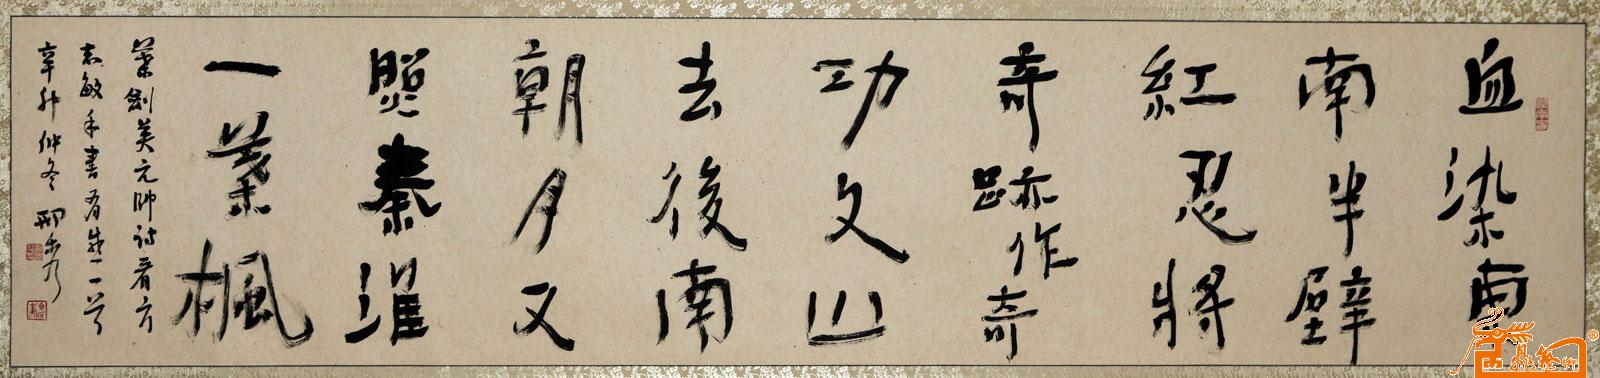 血染東
南半壁
紅忍將
奇跡作奇
功文山
去後南
朝月又
照秦淮
一葉楓
葉劍英元帥詩看方
志敏手書有感一首
辛卯仲冬 邢